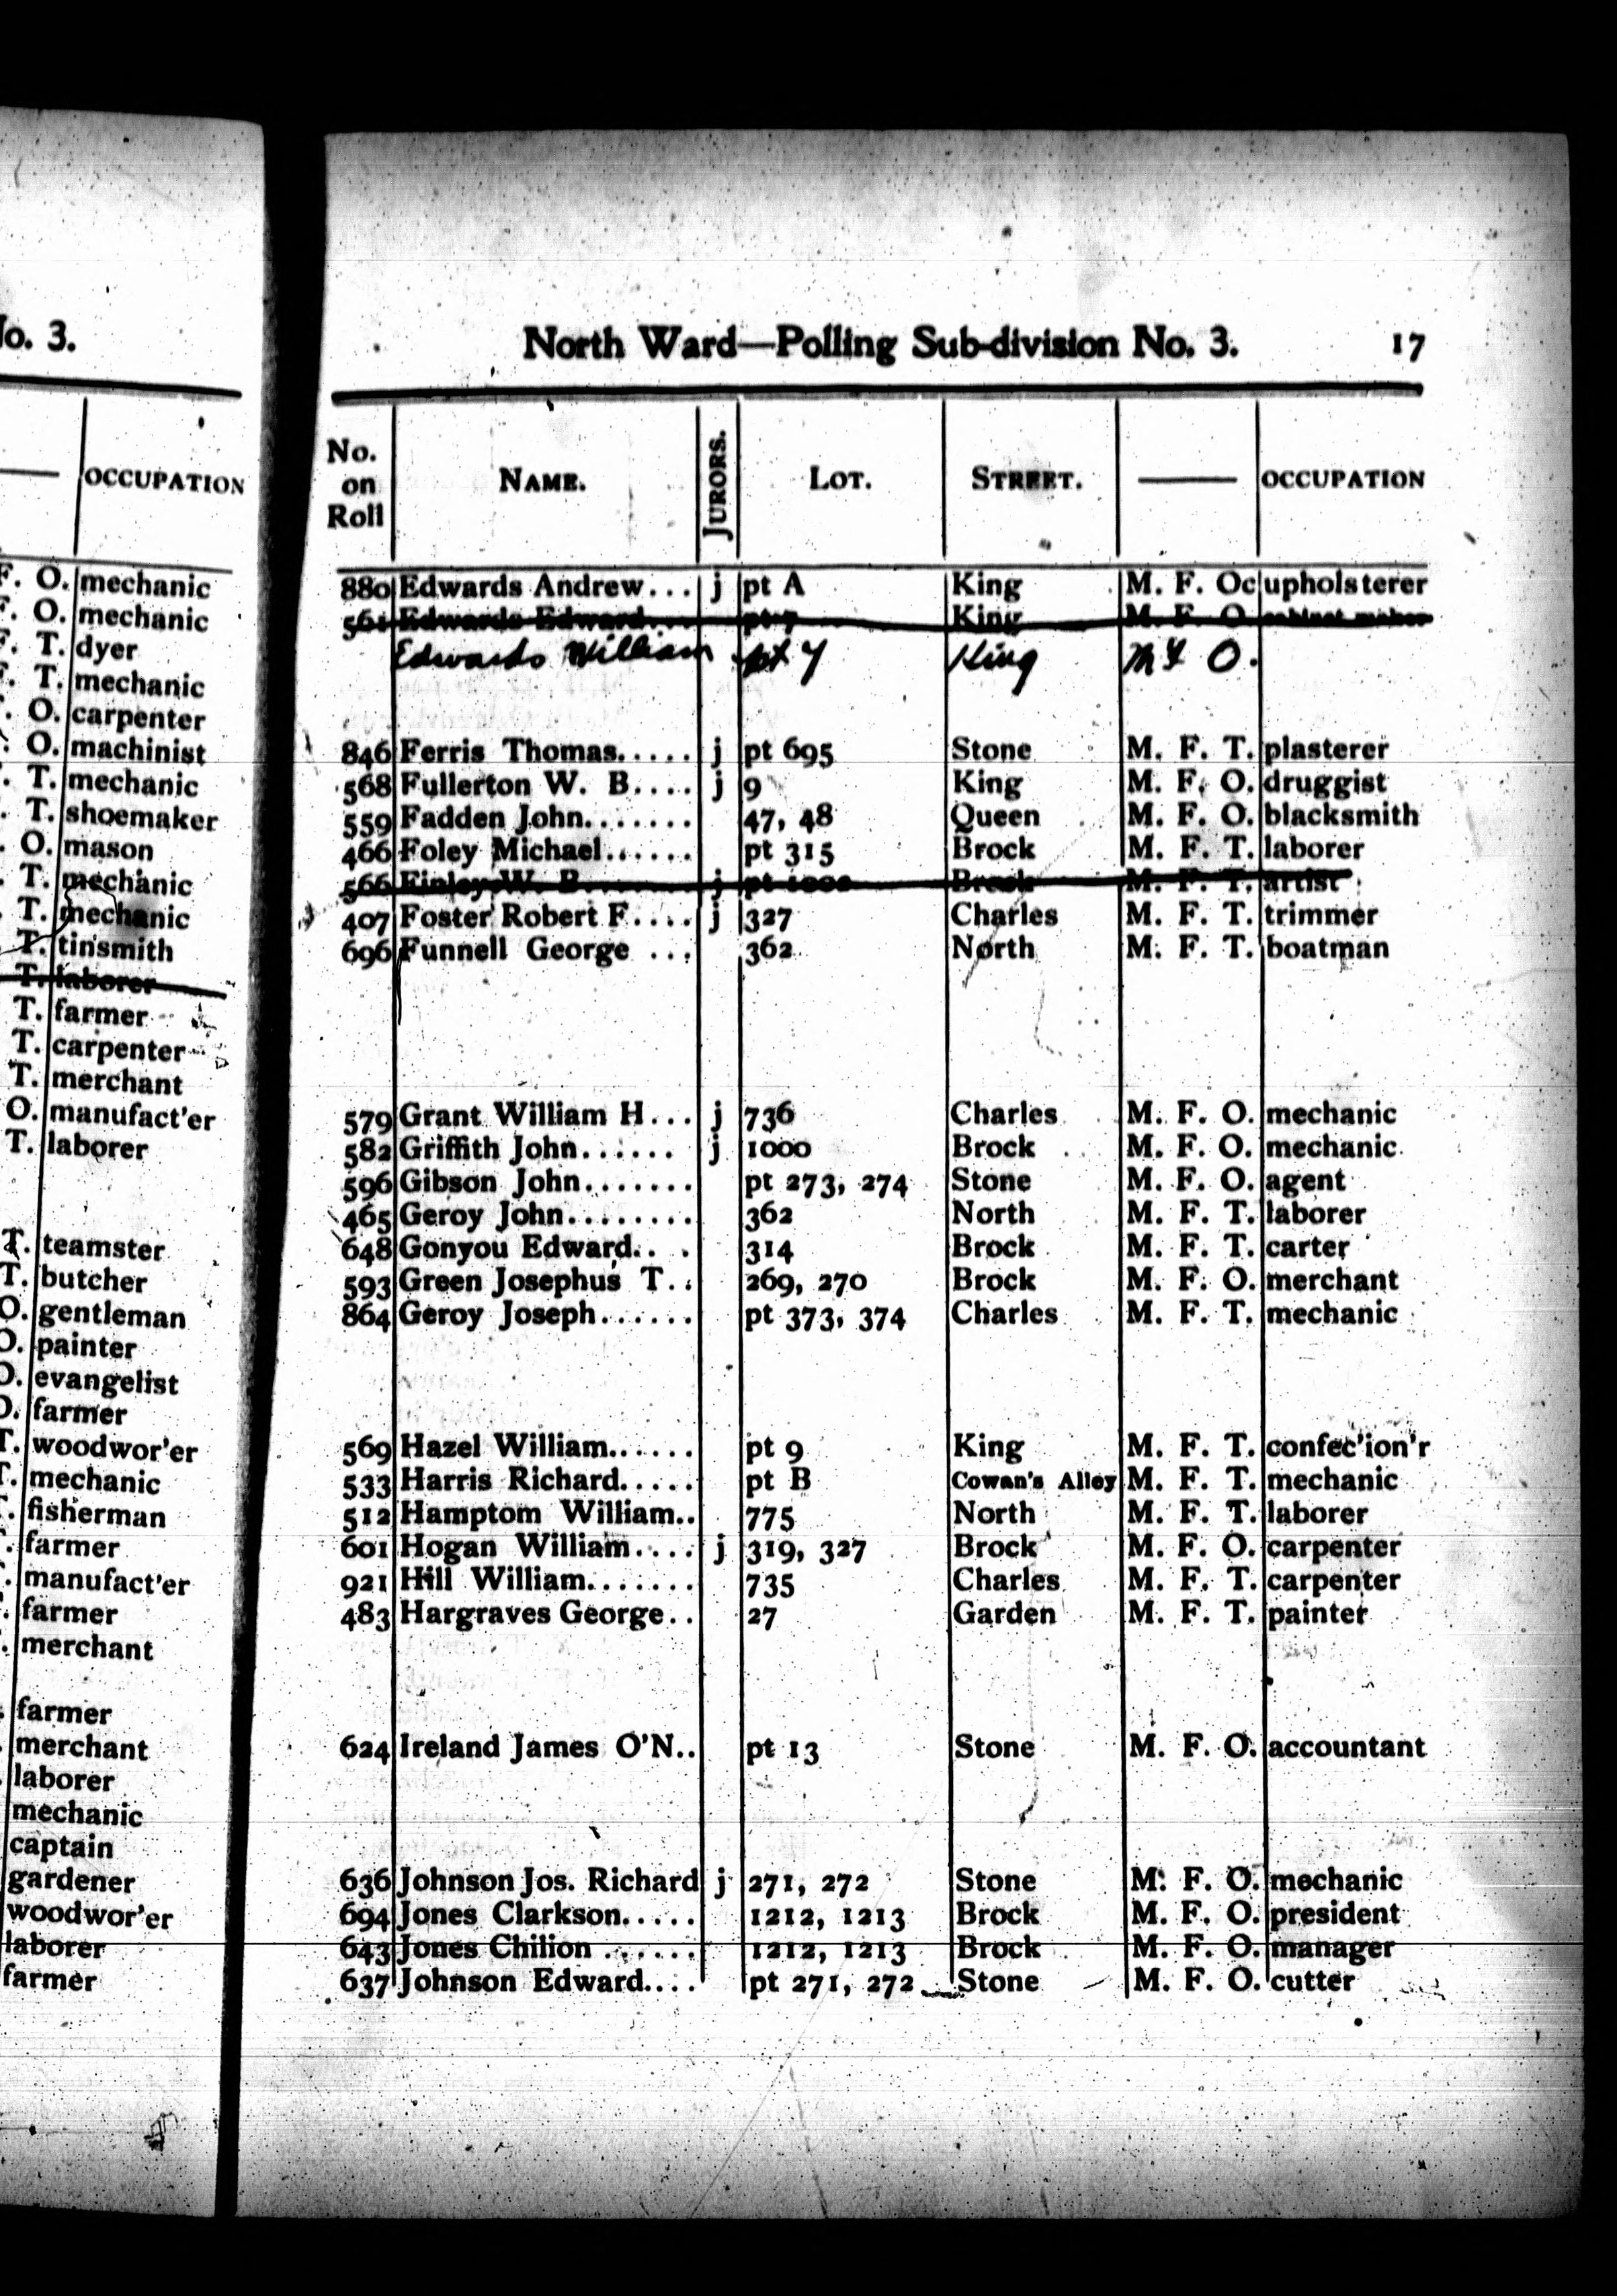 No. 3.
OCCUPATION
F. O. mechanic
F. O. mechanic
F. T. dyer
F. T. mechanic
. O. carpenter
. O. machinist
. T. mechanic
. T. shoemaker
. O. mason
. T. mechanic
. T. mechanic
T. tinsmith
T. laborer
T. farmer
T. carpenter
T. merchant
O. manufact'er
T. laborer
T. teamster
T. butcher
O. gentleman
O. painter
O. evangelist
O. farmer
T. woodwor'er
T. mechanic
. fisherman
. farmer
. manufact'er
. farmer
. merchant
farmer
merchant
laborer
mechanic
captain
gardener
woodwor'er
laborer
farmer
North Ward—Polling Sub-division No. 3. 17
No. on Roll NAME. JURORS. LOT. STREET. —— OCCUPATION
880 Edwards Andrew... j pt A King M. F. Oc upholsterer
561 Edwards Edward.... pt 7 King M. F. O. cabinet maker
Edwards William pt 7 King M F O.
846 Ferris Thomas..... j pt 695 Stone M. F. T. plasterer
568 Fullerton W. B.... j 9 King M. F. O. druggist
559 Fadden John....... 47, 48 Queen M. F. O. blacksmith
466 Foley Michael...... pt 315 Brock M. F. T. laborer
566 Finley W. B....... j pt 1000 Brock M. F. T. artist
407 Foster Robert F.... j 327 Charles M. F. T. trimmer
696 Funnell George ... 362 North M. F. T. boatman
579 Grant William H... j 736 Charles M. F. O. mechanic
582 Griffith John...... j 1000 Brock M. F. O. mechanic
596 Gibson John....... pt 273, 274 Stone M. F. O. agent
465 Geroy John........ 362 North M. F. T. laborer
648 Gonyou Edward.. . 314 Brock M. F. T. carter
593 Green Josephus T.. 269, 270 Brock M. F. O. merchant
864 Geroy Joseph...... pt 373, 374 Charles M. F. T. mechanic
569 Hazel William...... pt 9 King M. F. T. confec'ion'r
533 Harris Richard..... pt B Cowan's Alley M. F. T. mechanic
512 Hamptom William.. 775 North M. F. T. laborer
601 Hogan William.... j 319, 327 Brock M. F. O. carpenter
921 Hill William....... 735 Charles M. F. T. carpenter
483 Hargraves George.. 27 Garden M. F. T. painter
624 Ireland James O'N.. pt 13 Stone M. F. O. accountant
636 Johnson Jos. Richard j 271, 272 Stone M. F. O. mechanic
694 Jones Clarkson..... 1212, 1213 Brock M. F. O. president
643 Jones Chilion ...... 1212, 1213 Brock M. F. O. manager
637 Johnson Edward.... pt 271, 272 Stone M. F. O. cutter